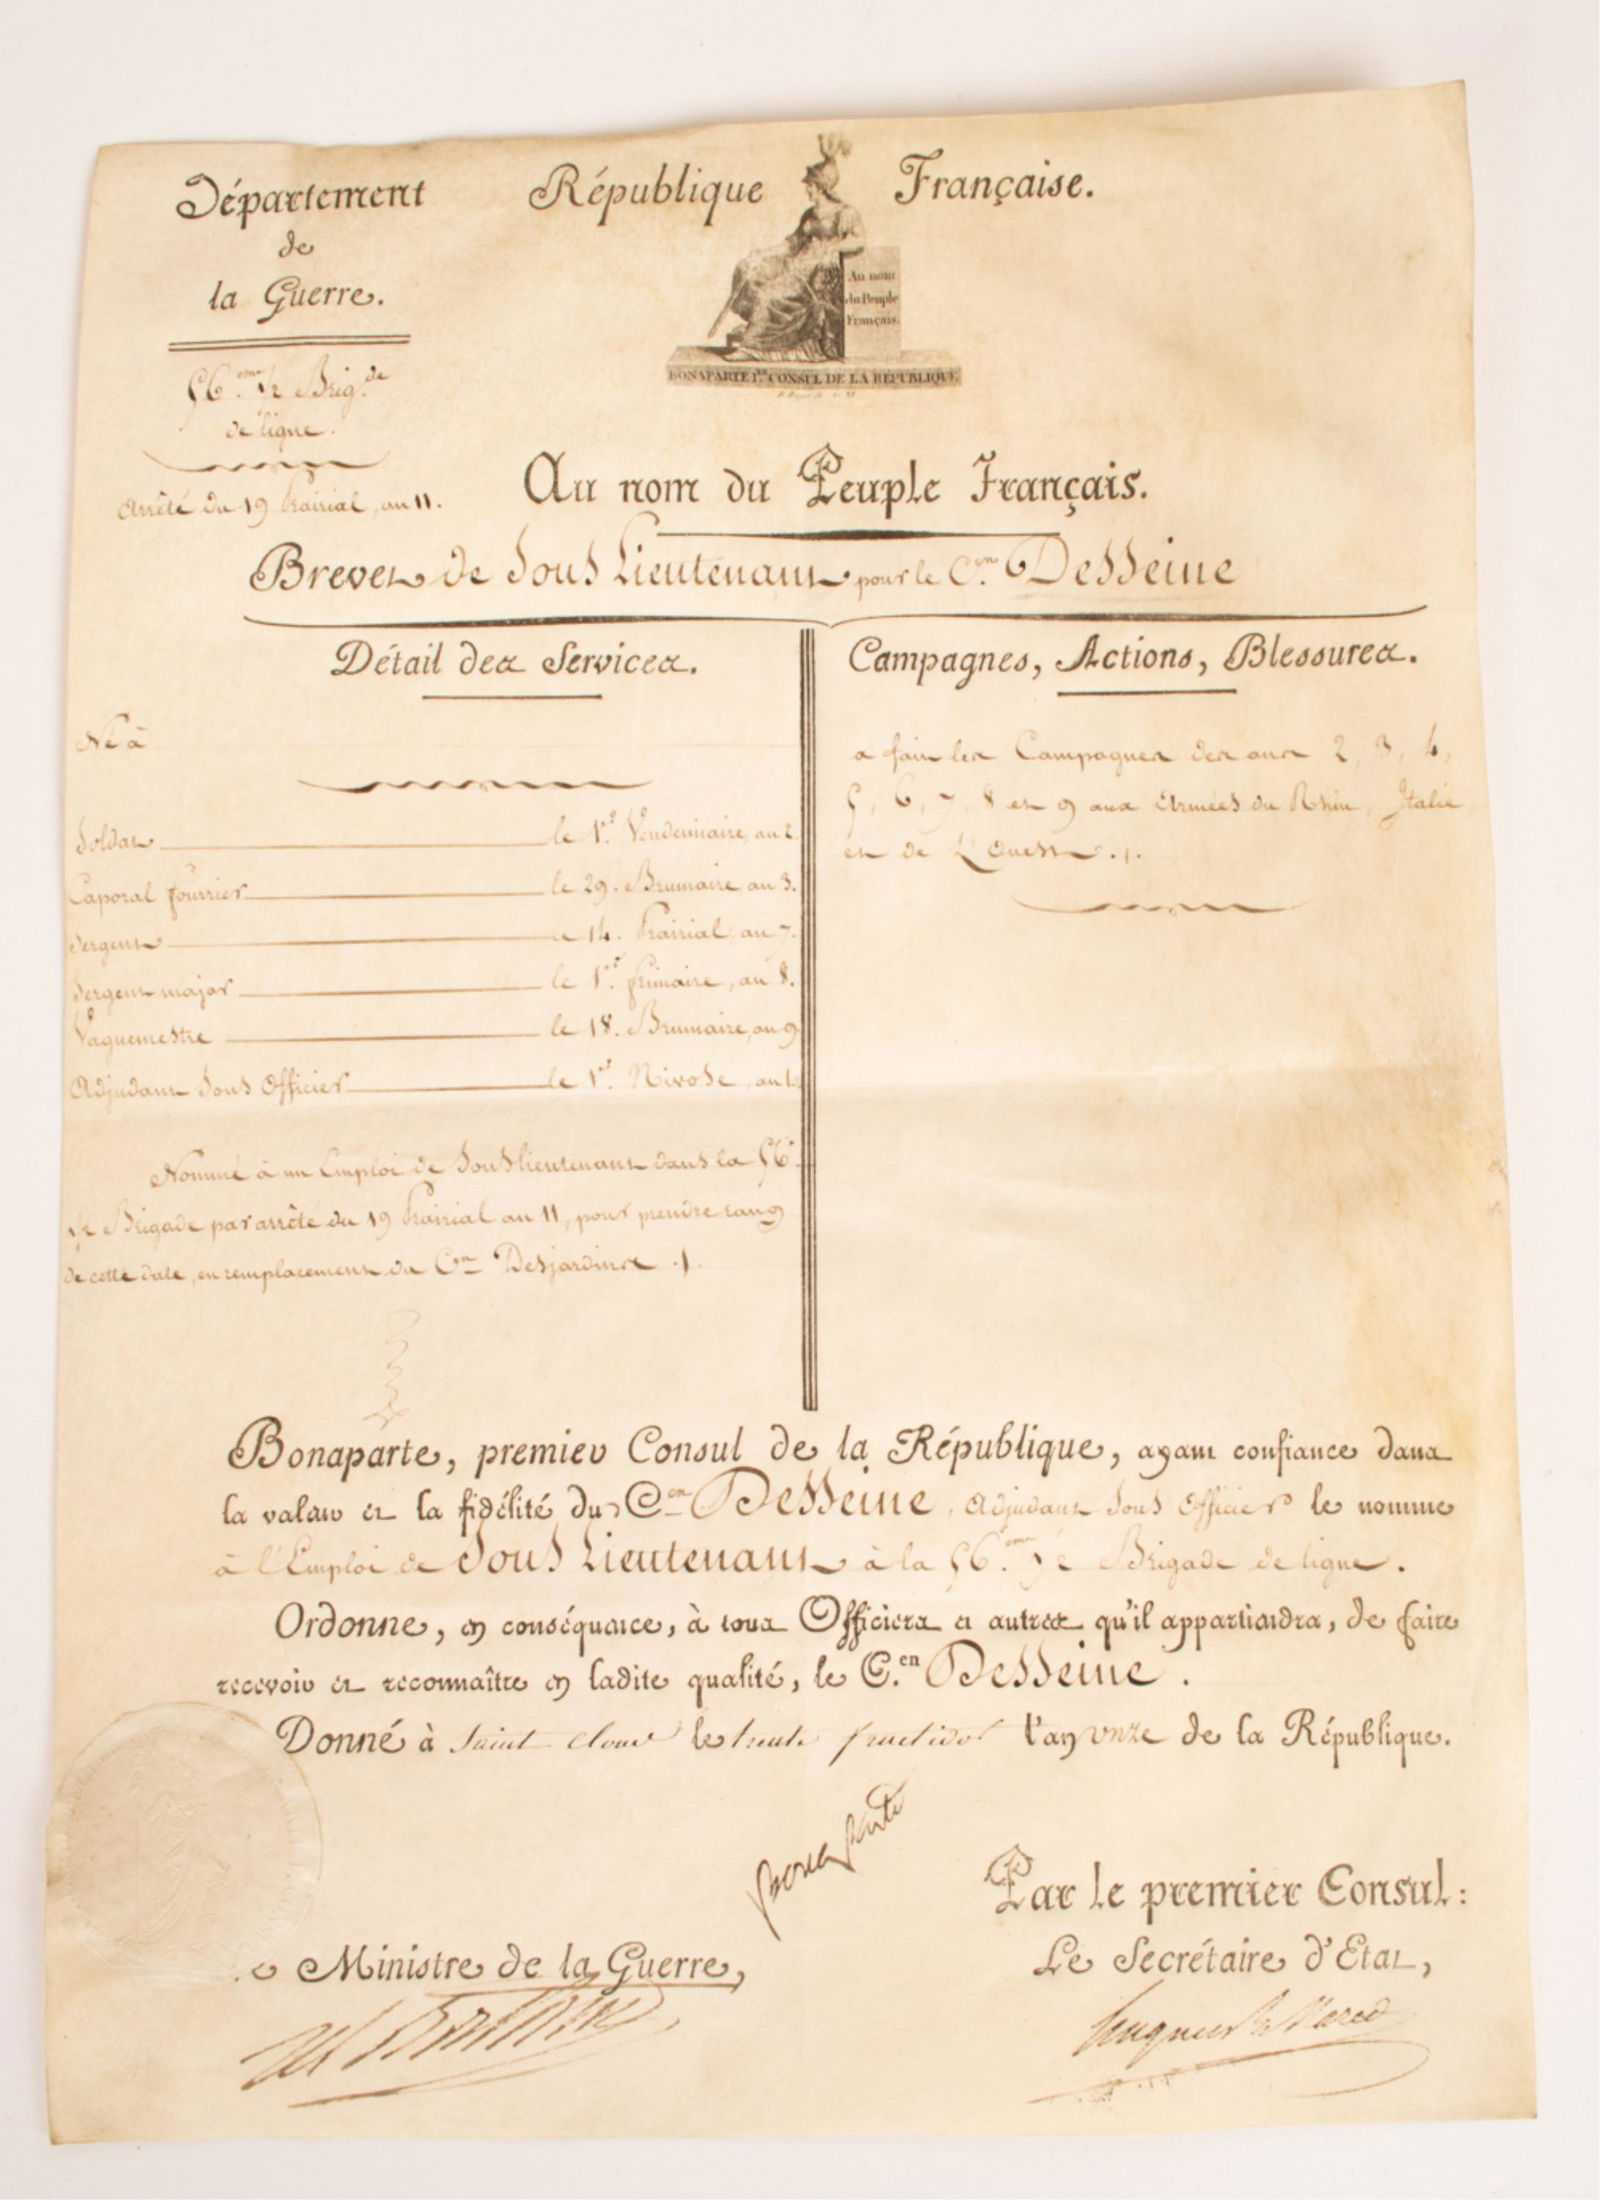 Département
de
la Guerre.
République Française.
Au nom
du Peuple
Français.
BONAPARTE 1er CONSUL DE LA REPUBLIQUE
56.eme 1/2 Brig.de
de ligne.
Arrêté du 19 Prairial, an 11.
Au nom du Peuple Français.
Brevet de Sous Lieutenant pour le C.en Desseine
Détail des Services.
Né à
Soldat le 1.er Vendemiaire, an 2.
Caporal fourrier le 29. Brumaire an 3.
Sergent le 14. Prairial, an 7.
Sergent major le 1.er frimaire, an 8.
Vaguemestre le 18. Brumaire, an 9
Adjudant Sous Officier le 1.er Nivose, an 10
Nommé à un Emploi de Sous lieutenant dans la 56.e
1/2 Brigade par arrêté du 19 Prairial an 11, pour prendre rang
de cette date, en remplacement du C.en Desjardins ./.
Campagnes, Actions, Blessures.
a fait les Campagnes des ans 2, 3, 4,
5, 6, 7, 8 et 9 aux Armées du Rhin, Italie
et de L'Ouest ./.
Bonaparte, premier Consul de la République, ayant confiance dans
la valeur et la fidélité du C.en Desseine, Adjudant Sous Officier le nomme
à l'Emploi de Sous Lieutenant à la 56.eme 1/2 Brigade de ligne.
Ordonne, en conséquence, à tous Officiers et autres qu'il appartiendra, de faire
recevoir et reconnaître en ladite qualité, le C.en Desseine.
Donné à Saint Cloud le trente fructidor l'an onze de la République.
Bonaparte
Ministre de la Guerre,
Par le premier Consul:
Le Secrétaire d'Etat,
Hugues B. Maret